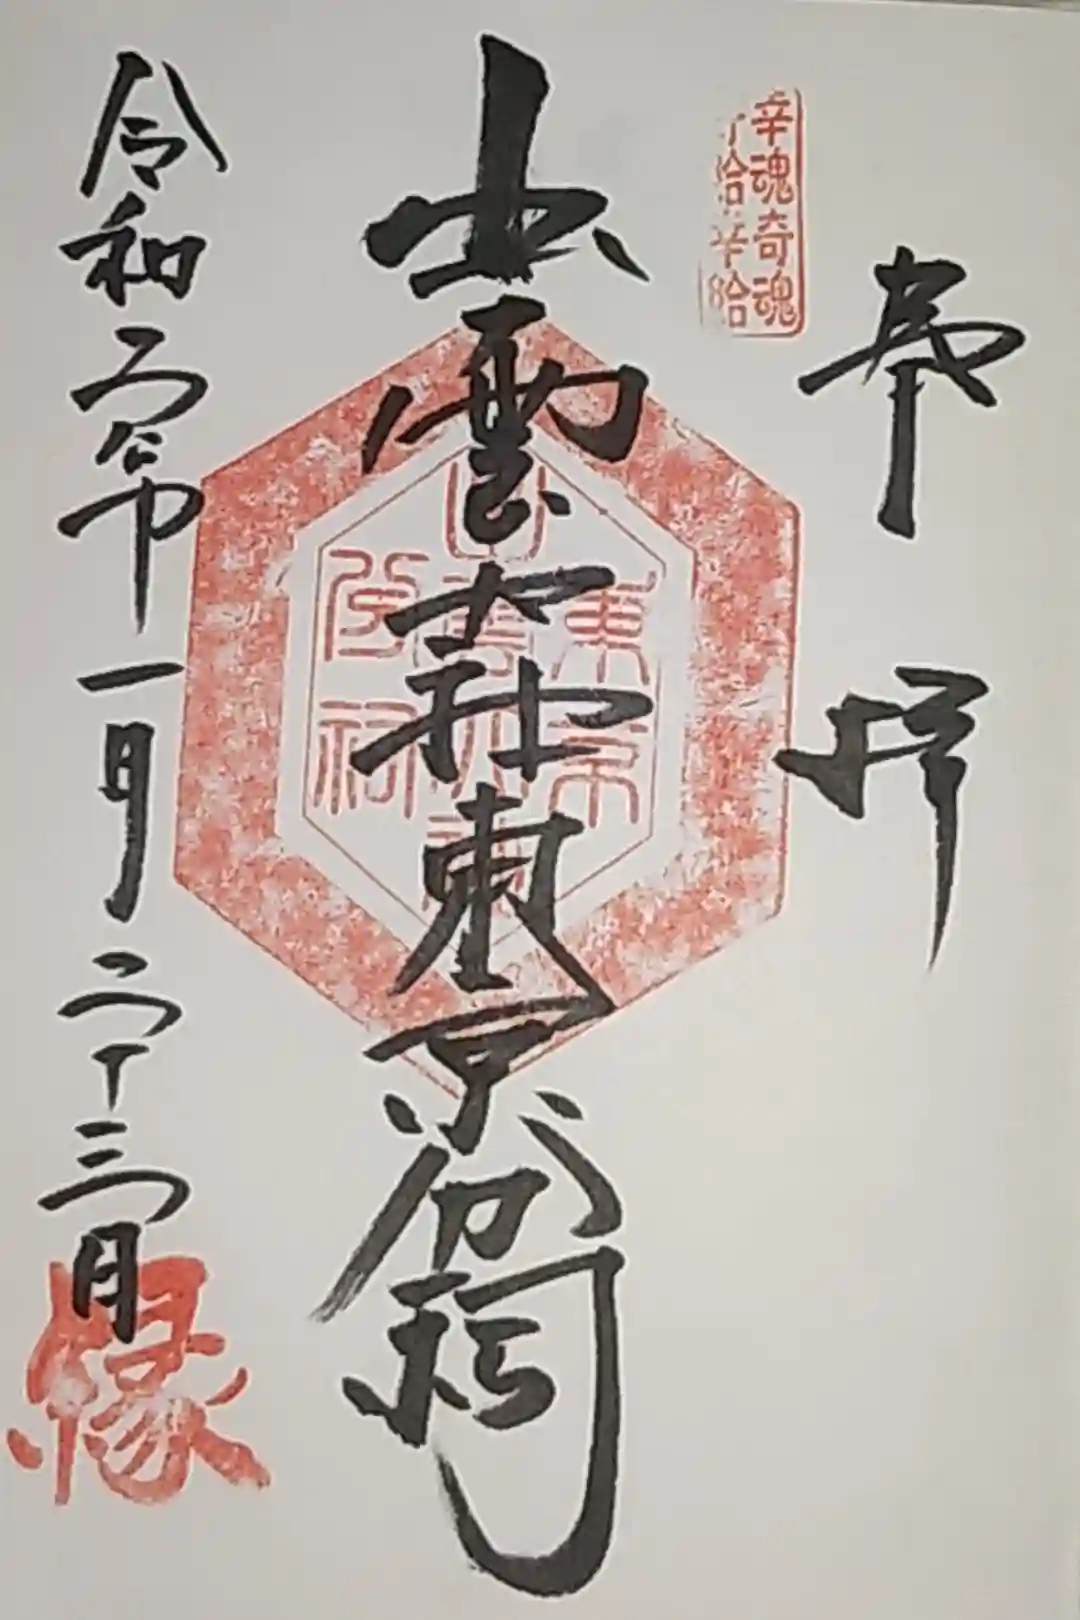 幸魂奇魂
守給幸給
奉拝
出雲大社東京分祠
東京
出雲大社
分祠
令和二年一月二十三日
縁